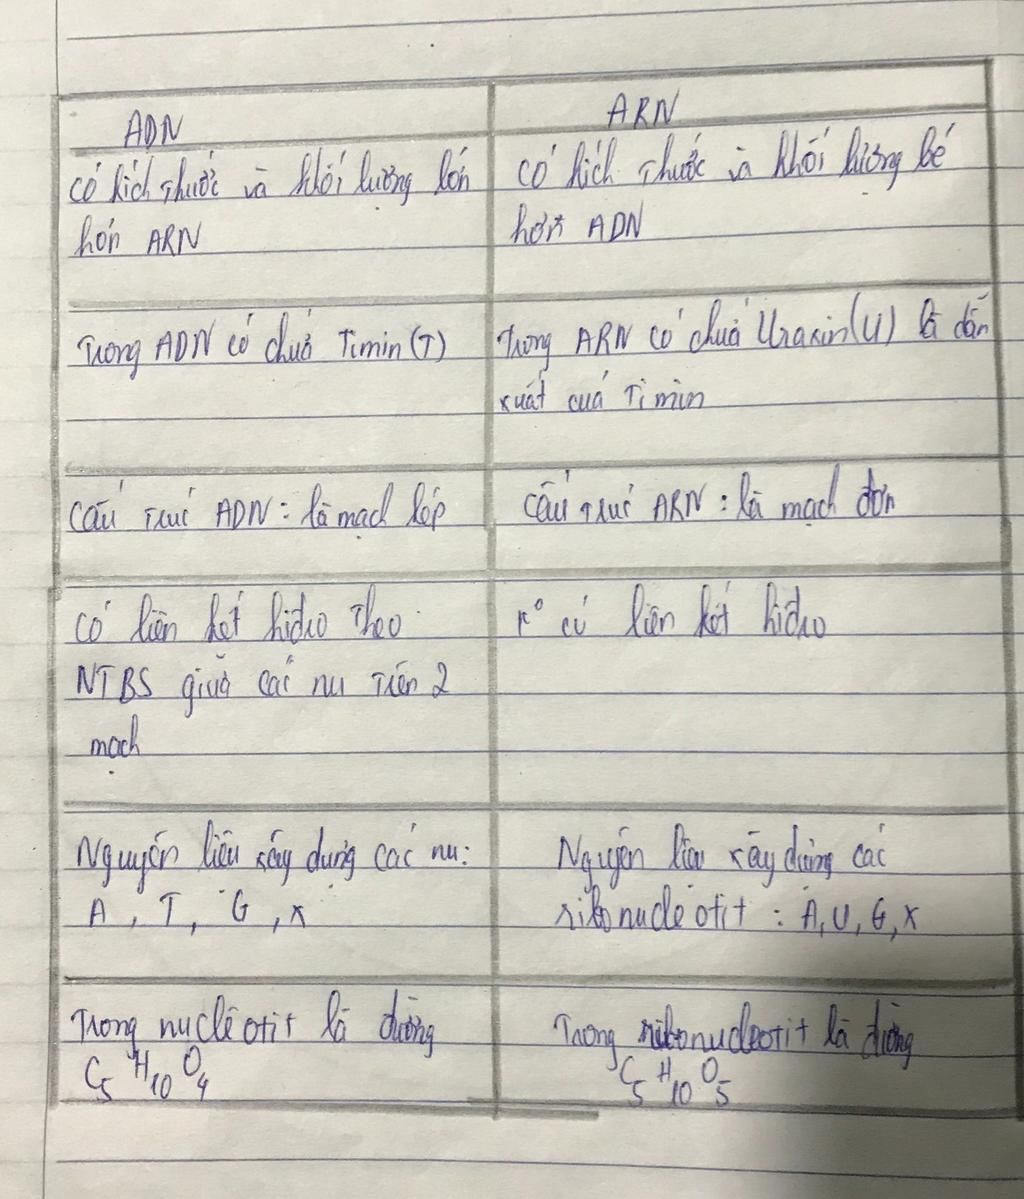 ADN
có kích thước và khối lượng lớn
hơn ARN
Trong ADN có chứa Timin (T)
Cấu trúc ADN : là mạch kép
Có liên kết hiđro theo
NTBS giữa các nu trên 2
mạch
Nguyên liệu xây dựng các nu :
A , T , G , X
Trong nuclêôtit là đường
C5 H10 O4
ARN
có kích thước và khối lượng bé
hơn ADN
Trong ARN có chứa Uraxin (U) là dẫn
xuất của Timin
Cấu trúc ARN : là mạch đơn
K° có liên kết hiđro
Nguyên liệu xây dựng các
ribonuclêôtit : A, U, G, X
Trong ribonuclêotit là đường
C5 H10 O5